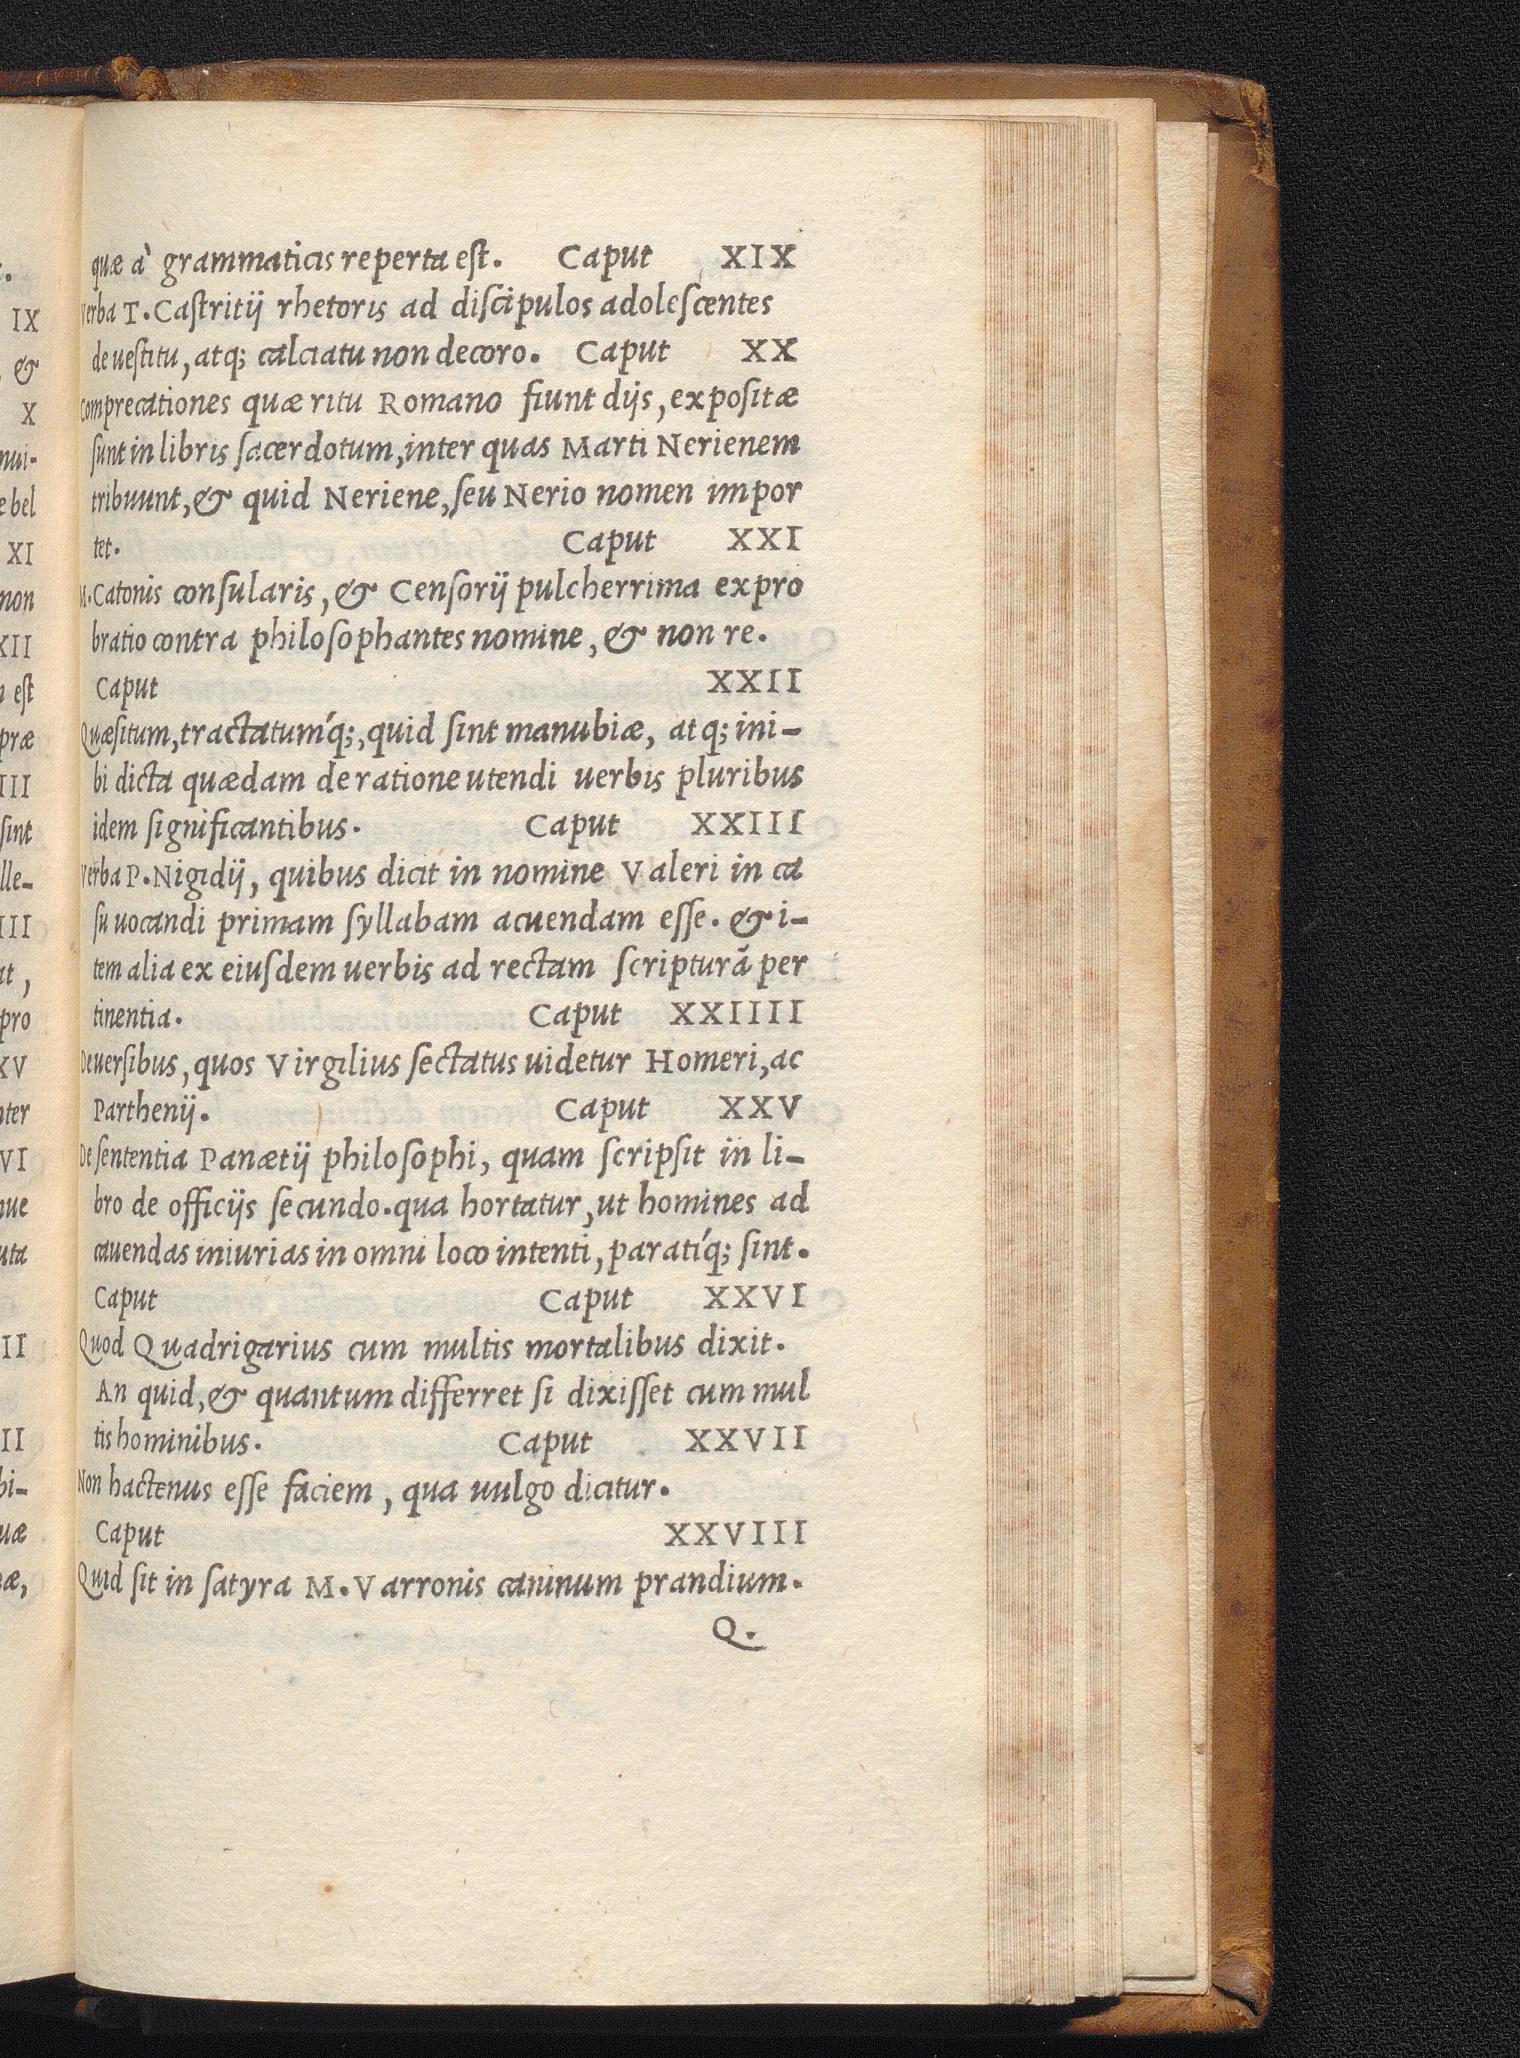 quæ à grammaticis reperta est. Caput XIX
Verba T. Castritij rhetoris ad discipulos adolescentes
de uestitu, atq; calciatu non decoro. Caput XX
Comprecationes quæ ritu Romano fiunt dijs, expositæ
sunt in libris sacerdotum, inter quas Marti Nerienem
tribuunt, & quid Neriene, seu Nerio nomen impor
tet. Caput XXI
M. Catonis consularis, & Censorij pulcherrima expro
bratio contra philosophantes nomine, & non re.
Caput XXII
Quæsitum, tractatumq́;, quid sint manubiæ, atq; ini-
bi dicta quædam de ratione utendi uerbis pluribus
idem significantibus. Caput XXIII
Verba P. Nigidij, quibus dicit in nomine Valeri in ca
su uocandi primam syllabam acuendam esse. & i-
tem alia ex eiusdem uerbis ad rectam scripturā per
tinentia. Caput XXIIII
De uersibus, quos Virgilius sectatus uidetur Homeri, ac
Parthenij. Caput XXV
De sententia Panætij philosophi, quam scripsit in li-
bro de officijs secundo. qua hortatur, ut homines ad
cauendas iniurias in omni loco intenti, paratiq́; sint.
Caput Caput XXVI
Quod Quadrigarius cum multis mortalibus dixit.
An quid, & quantum differret si dixisset cum mul
tis hominibus. Caput XXVII
Non hactenus esse faciem, qua uulgo dicitur.
Caput XXVIII
Quid sit in satyra M. Varronis caninum prandium.
Q.
IX
&
X
nui-
bel
XI
non
XII
est
præ
III
sint
lle-
III
at,
pro
XV
VI
II
II
bi-